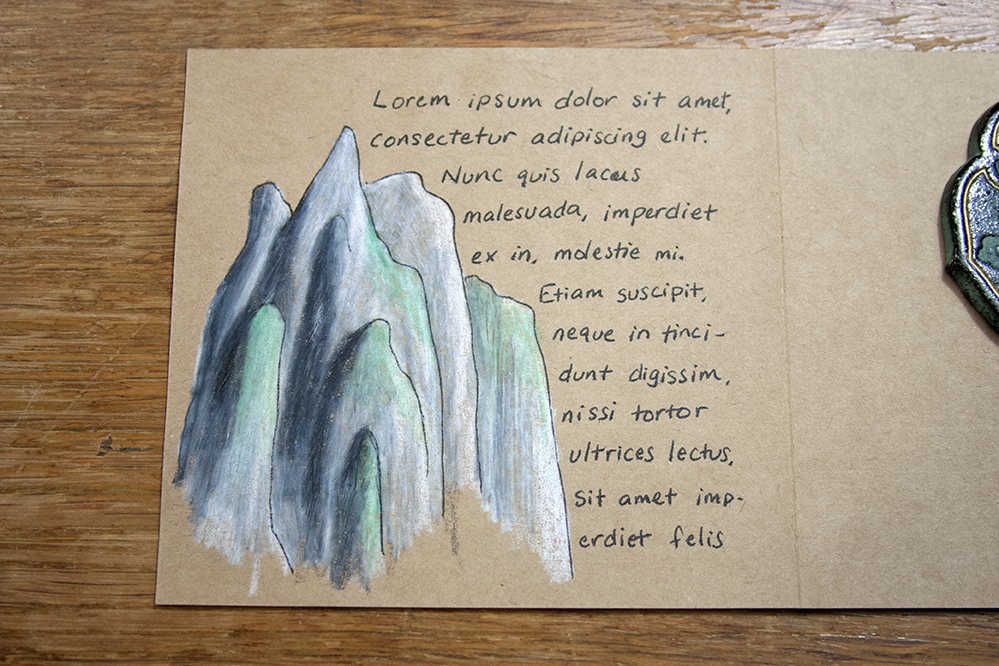 Lorem ipsum dolor sit amet,
consectetur adipiscing elit.
Nunc quis lacus
malesuada, imperdiet
ex in, molestie mi.
Etiam suscipit,
neque in tinci-
dunt digissim,
nissi tortor
ultrices lectus,
sit amet imp-
erdiet felis